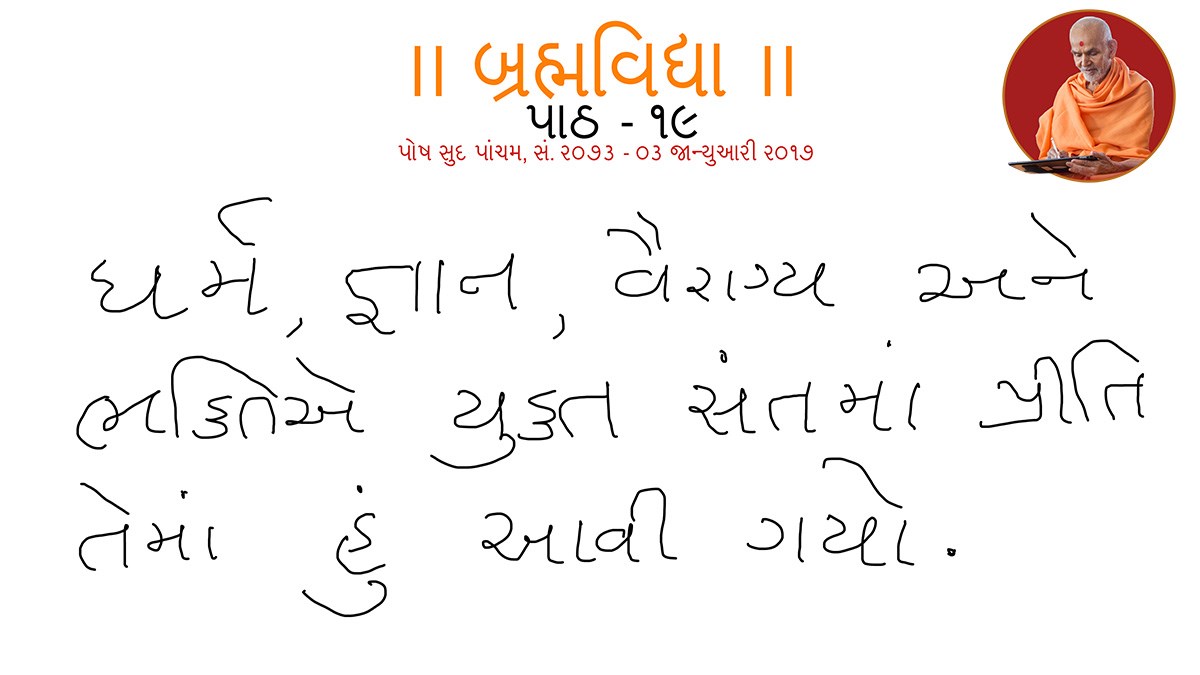 ॥ બ્રહ્મવિદ્યા ॥
પાઠ - ૧૯
પોષ સુદ પાંચમ, સં. ૨૦૭૩ - ૦૩ જાન્યુઆરી ૨૦૧૭
ધર્મ, જ્ઞાન, વૈરાગ્ય અને
ભક્તિએ યુક્ત સંતમાં પ્રીતિ
તેમાં હું આવી ગયો.